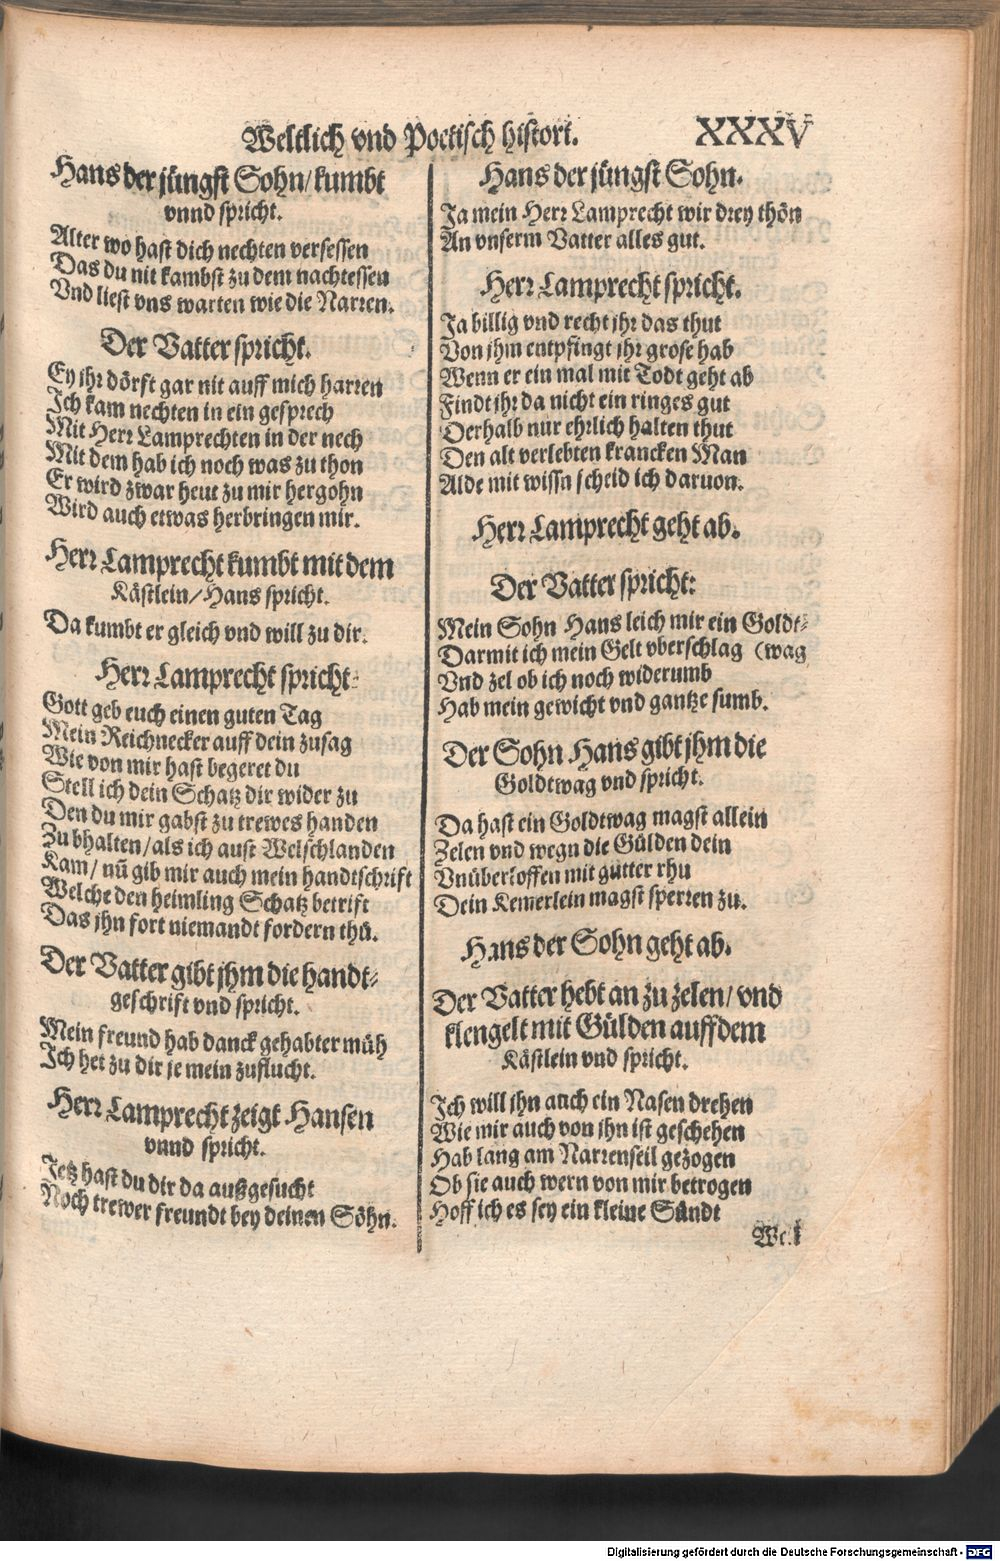 Weltlich vnd Poetisch histori.
XXXV
Hans der jüngst Sohn/ kumbt
vnnd spricht.
Alter wo hast dich nechten versessen
Das du nit kambst zu dem nachtessen
Vnd liest vns warten wie die Narren.
Der Vatter spricht.
Ey jhr dörft gar nit auff mich harren
Ich kam nechten in ein gesprech
Mit Herr Lamprechten in der nech
Mit dem hab ich noch was zu thon
Er wird zwar heut zu mir hergohn
Wird auch etwas herbringen mir.
Herr Lamprecht kumbt mit dem
Kästlein/ Hans spricht.
Da kumbt er gleich vnd will zu dir.
Herr Lamprecht spricht:
Gott geb euch einen guten Tag
Mein Reichnecker auff dein zusag
Wie von mir hast begeret du
Stell ich dein Schatz dir wider zu
Den du mir gabst zu trewes handen
Zu bhalten/ als ich aust Welschlanden
Kam/ nũ gib mir auch mein handtschrift
Welche den heimling Schatz betrift
Das jhn fort niemandt fordern thů.
Der Vatter gibt jhm die handt-
geschrift vnd spricht.
Mein freund hab danck gehabter müh
Ich het zu dir je mein zuflucht.
Herr Lamprecht zeigt Hansen
vnnd spricht.
Jetz hast du dir da außgesucht
Noch trewer freundt bey deinen Söhn.
Hans der jüngst Sohn.
Ja mein Herr Lamprecht wir drey thön
An vnserm Vatter alles gut.
Herr Lamprecht spricht.
Ja billig vnd recht jhr das thut
Von jhm entpfingt jhr grose hab
Wenn er ein mal mit Todt geht ab
Findt jhr da nicht ein ringes gut
Derhalb nur ehrlich halten thut
Den alt verlebten krancken Man
Alde mit wissn scheid ich daruon.
Herr Lamprecht geht ab.
Der Vatter spricht:
Mein Sohn Hans leich mir ein Goldt-
Darmit ich mein Gelt vberschlag (wag
Vnd zel ob ich noch widerumb
Hab mein gewicht vnd gantze sumb.
Der Sohn Hans gibt jhm die
Goldtwag vnd spricht.
Da hast ein Goldtwag magst allein
Zelen vnd wegn die Gülden dein
Vnüberloffen mit gutter rhu
Dein Kemerlein magst sperren zu.
Hans der Sohn geht ab.
Der Vatter hebt an zu zelen/ vnd
klengelt mit Gülden auff dem
Kästlein vnd spricht.
Ich will jhn auch ein Nasen drehen
Wie mir auch von jhn ist geschehen
Hab lang am Narrenseil gezogen
Ob sie auch wern von mir betrogen
Hoff ich es sey ein kleine Sündt
Digitalisierung gefördert durch die Deutsche Forschungsgemeinschaft - DFG